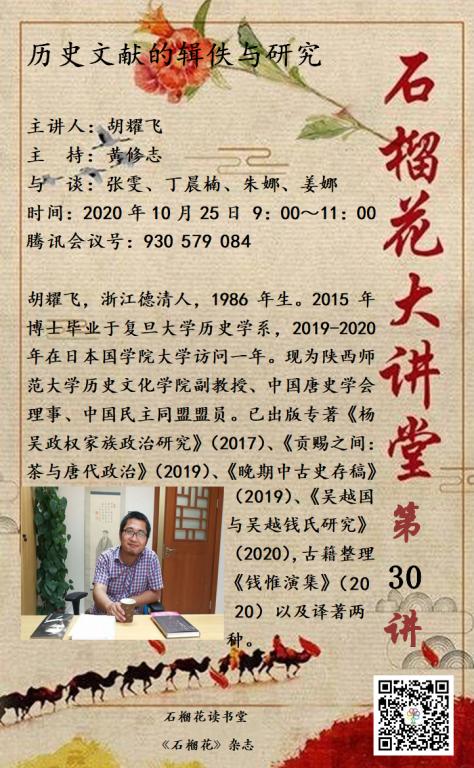 历史文献的辑佚与研究
主讲人：胡耀飞
主　持：黄修志
与　谈：张雯、丁晨楠、朱娜、姜娜
时间：2020 年 10 月 25 日 9：00～11：00
腾讯会议号：930 579 084
胡耀飞，浙江德清人，1986 年生。2015 年
博士毕业于复旦大学历史学系，2019-2020
年在日本国学院大学访问一年。现为陕西师
范大学历史文化学院副教授、中国唐史学会
理事、中国民主同盟盟员。已出版专著《杨
吴政权家族政治研究》（2017）、《贡赐之间：
茶与唐代政治》（2019）、《晚期中古史存稿》
（2019）、《吴越国
与吴越钱氏研究》
（2020），古籍整理
《钱惟演集》（20
20）以及译著两
种。
石榴花大讲堂
第
30
讲
石榴花读书堂
《石榴花》杂志